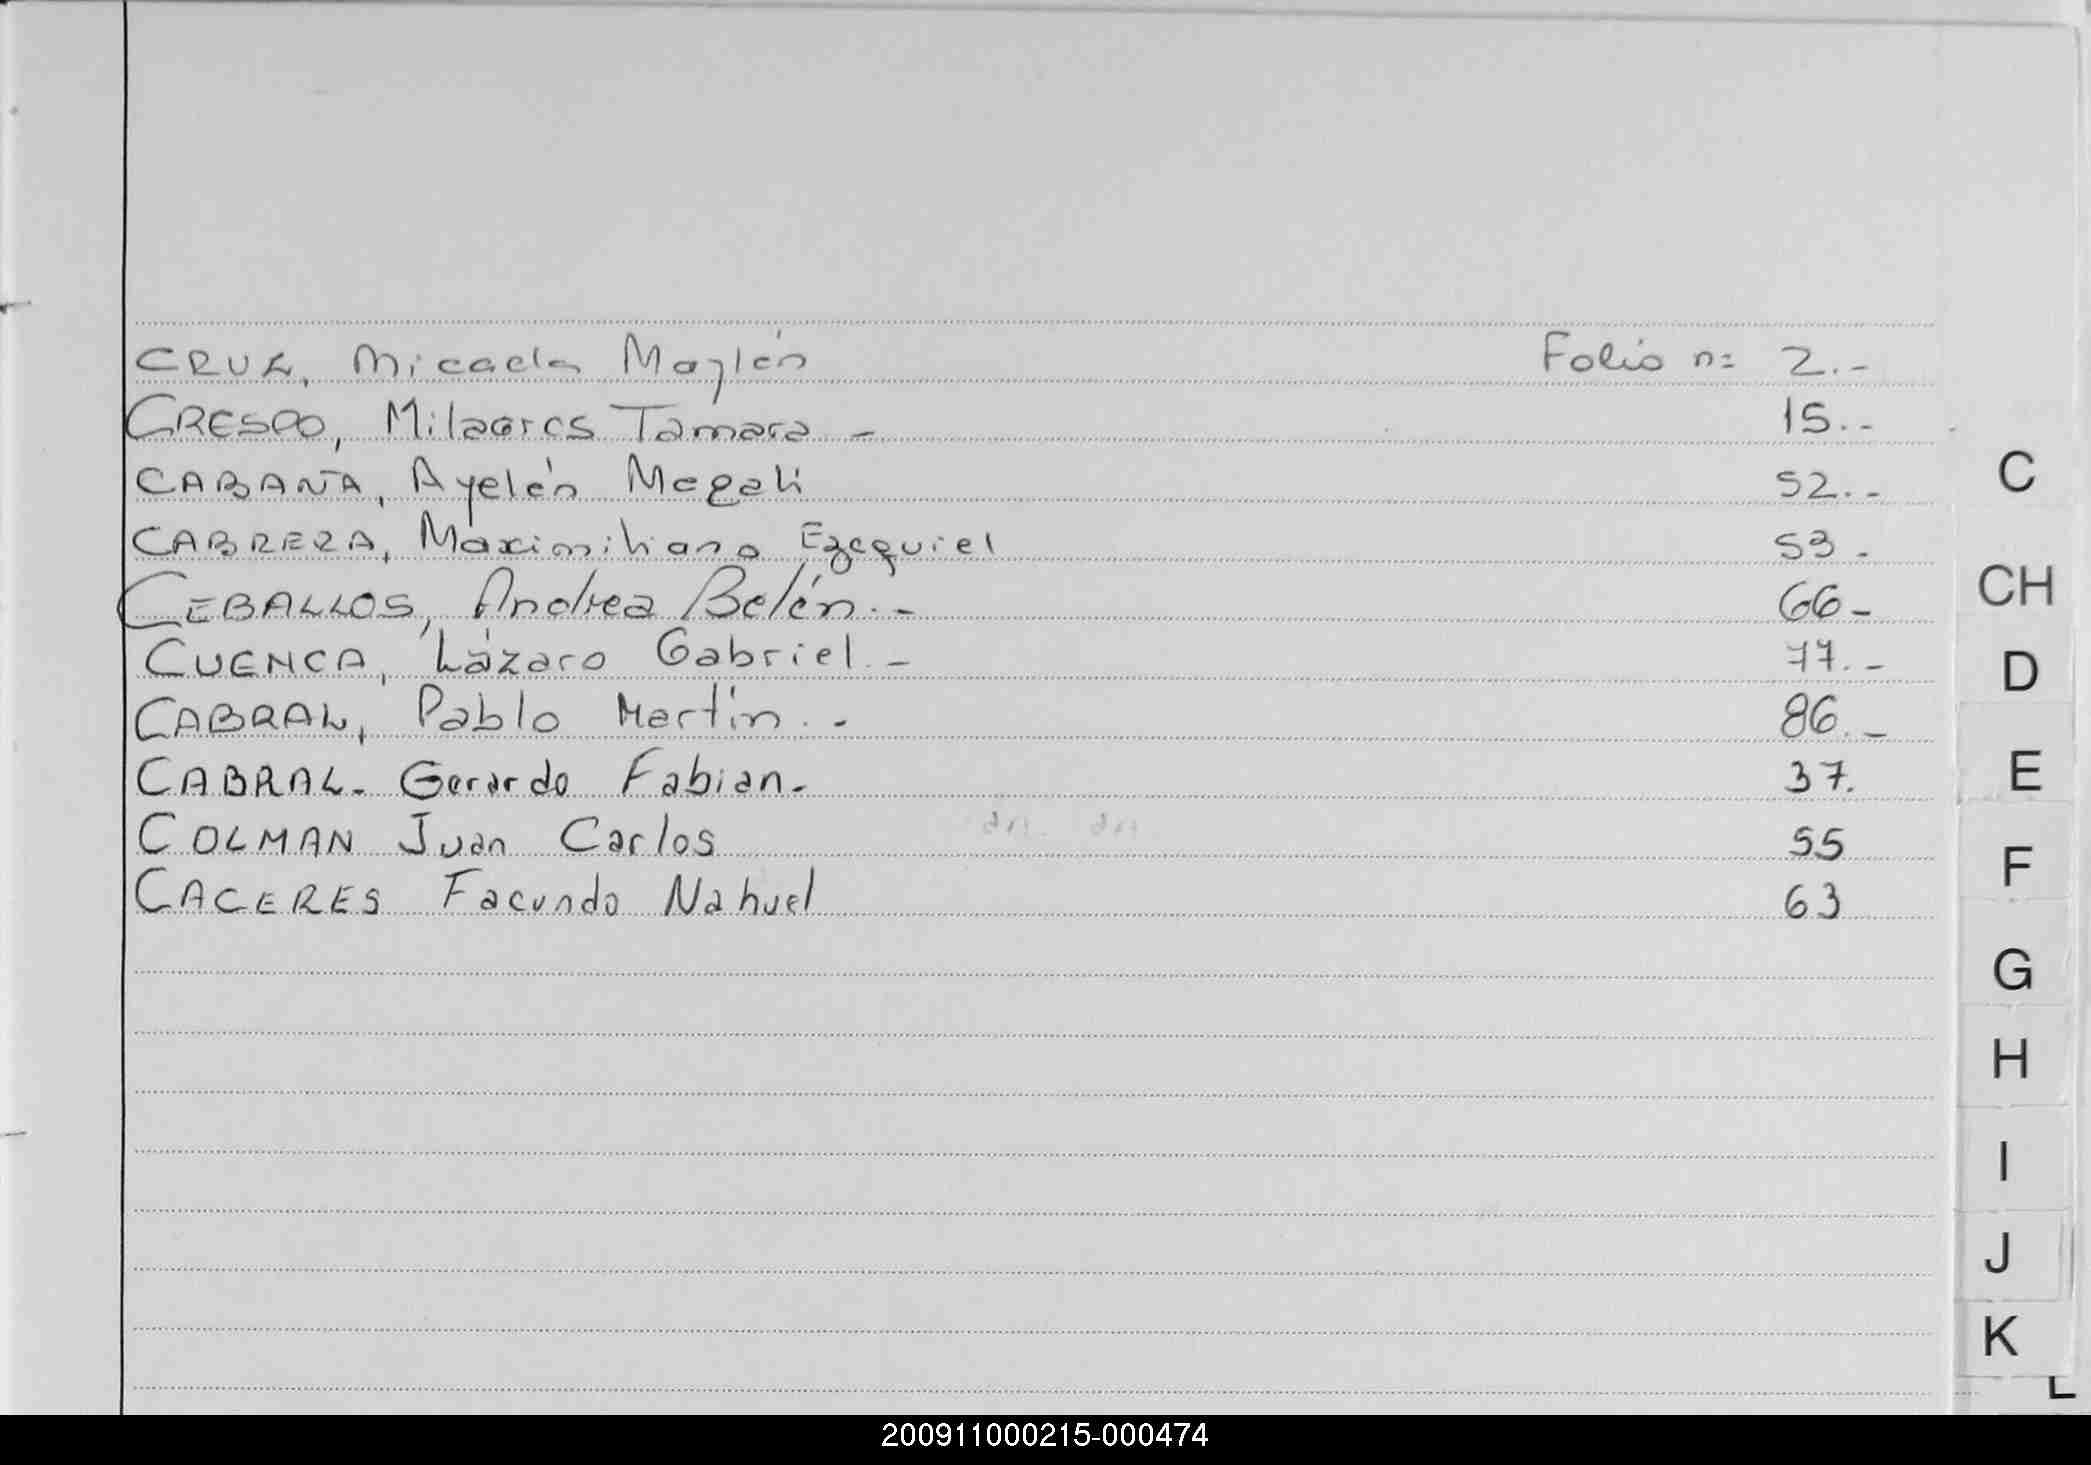 CRUZ, Micaela Maylén Folio n= 2.-
CRESPO, Milagros Tamara - 15.-
CABAÑA, Ayelén Magali 52.-
CABRERA, Maximiliano Ezequiel 53.
CEBALLOS, Andrea Belén.- 66-
CUENCA, Lázaro Gabriel.- 77.-
CABRAL, Pablo Martín.- 86.-
CABRAL- Gerardo Fabian. 37.
COLMAN Juan Carlos 55
CACERES Facundo Nahuel 63
C
CH
D
E
F
G
H
I
J
K
L
200911000215-000474